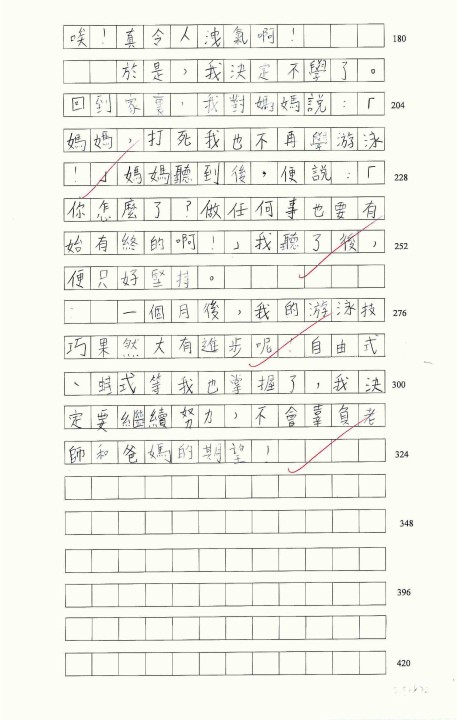 唉！真令人洩氣啊！ 180
於是，我決定不學了。
回到家裏，我對媽媽說：「 204
媽媽，打死我也不再學游泳
！」媽媽聽到後，便說：「 228
你怎麼了？做任何事也要有
始有終的啊！」我聽了後， 252
便只好堅持。
一個月後，我的游泳技 276
巧果然大有進步呢！自由式
、蛙式等我也掌握了，我決 300
定要繼續努力，不會辜負老
師和爸媽的期望！ 324
348
396
420